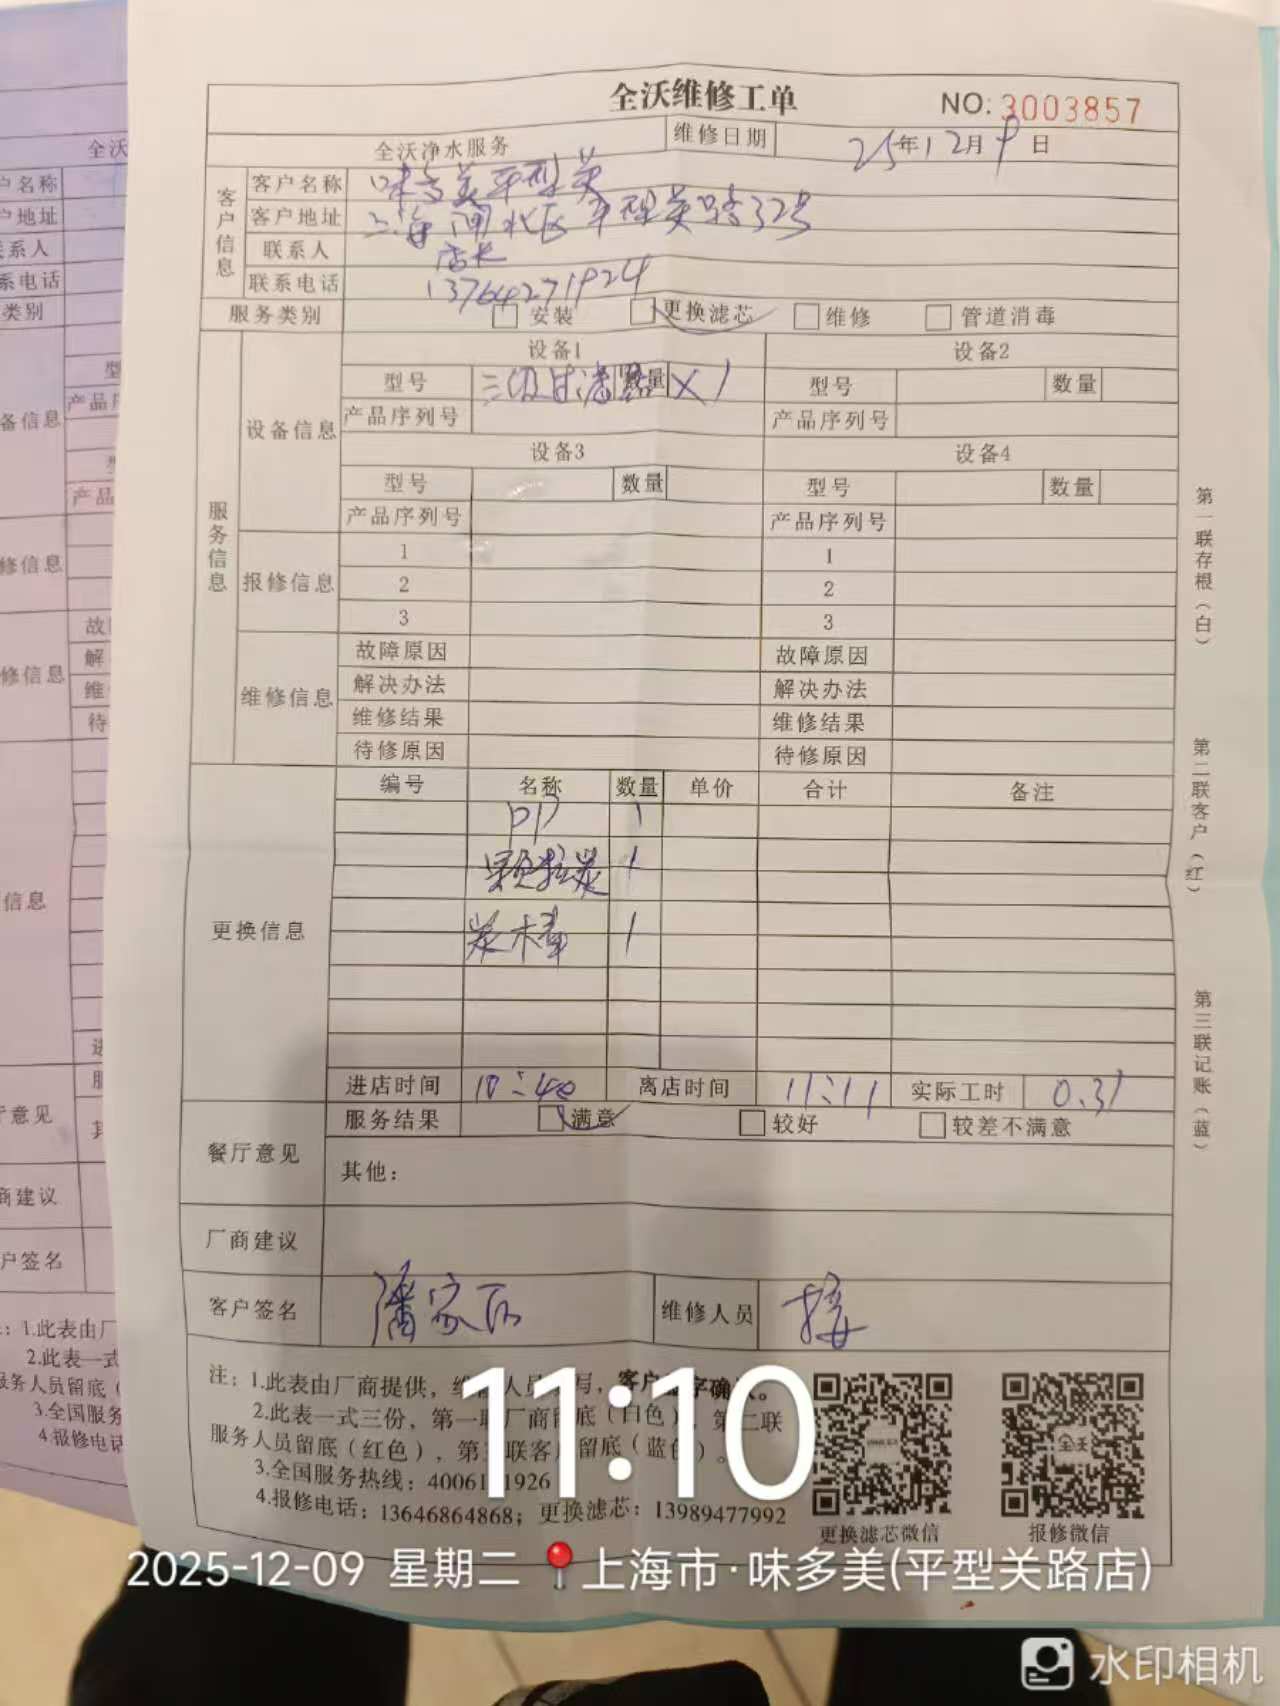 全沃维修工单 NO: 3003857
全沃净水服务 维修日期 25年12月9日
客户信息
客户名称 味多美平型关
客户地址 上海闸北区平型关路325
联系人 店长
联系电话 13764271924
服务类别 安装 更换滤芯 维修 管道消毒
服务信息
设备信息
设备1 设备2
型号 三级过滤器 数量 X1 型号 数量
产品序列号 产品序列号
设备3 设备4
型号 数量 型号 数量
产品序列号 产品序列号
报修信息
1 1
2 2
3 3
维修信息
故障原因 故障原因
解决办法 解决办法
维修结果 维修结果
待修原因 待修原因
更换信息
编号 名称 数量 单价 合计 备注
PP 1
颗粒炭 1
炭棒 1
进店时间 10:40 离店时间 11:11 实际工时 0.31
餐厅意见
服务结果 满意 较好 较差不满意
其他:
厂商建议
客户签名 维修人员
注: 1.此表由厂商提供,
2.此表一式三份, 第一联厂商留底(白色), 第二联
服务人员留底(红色), 第三联客户留底(蓝色)。
3.全国服务热线: 4006 1926
4.报修电话: 13646864868; 更换滤芯: 13989477992
更换滤芯微信 报修微信
第一联存根(白)
第二联客户(红)
第三联记账(蓝)
11:10
2025-12-09 星期二 上海市·味多美(平型关路店)
水印相机